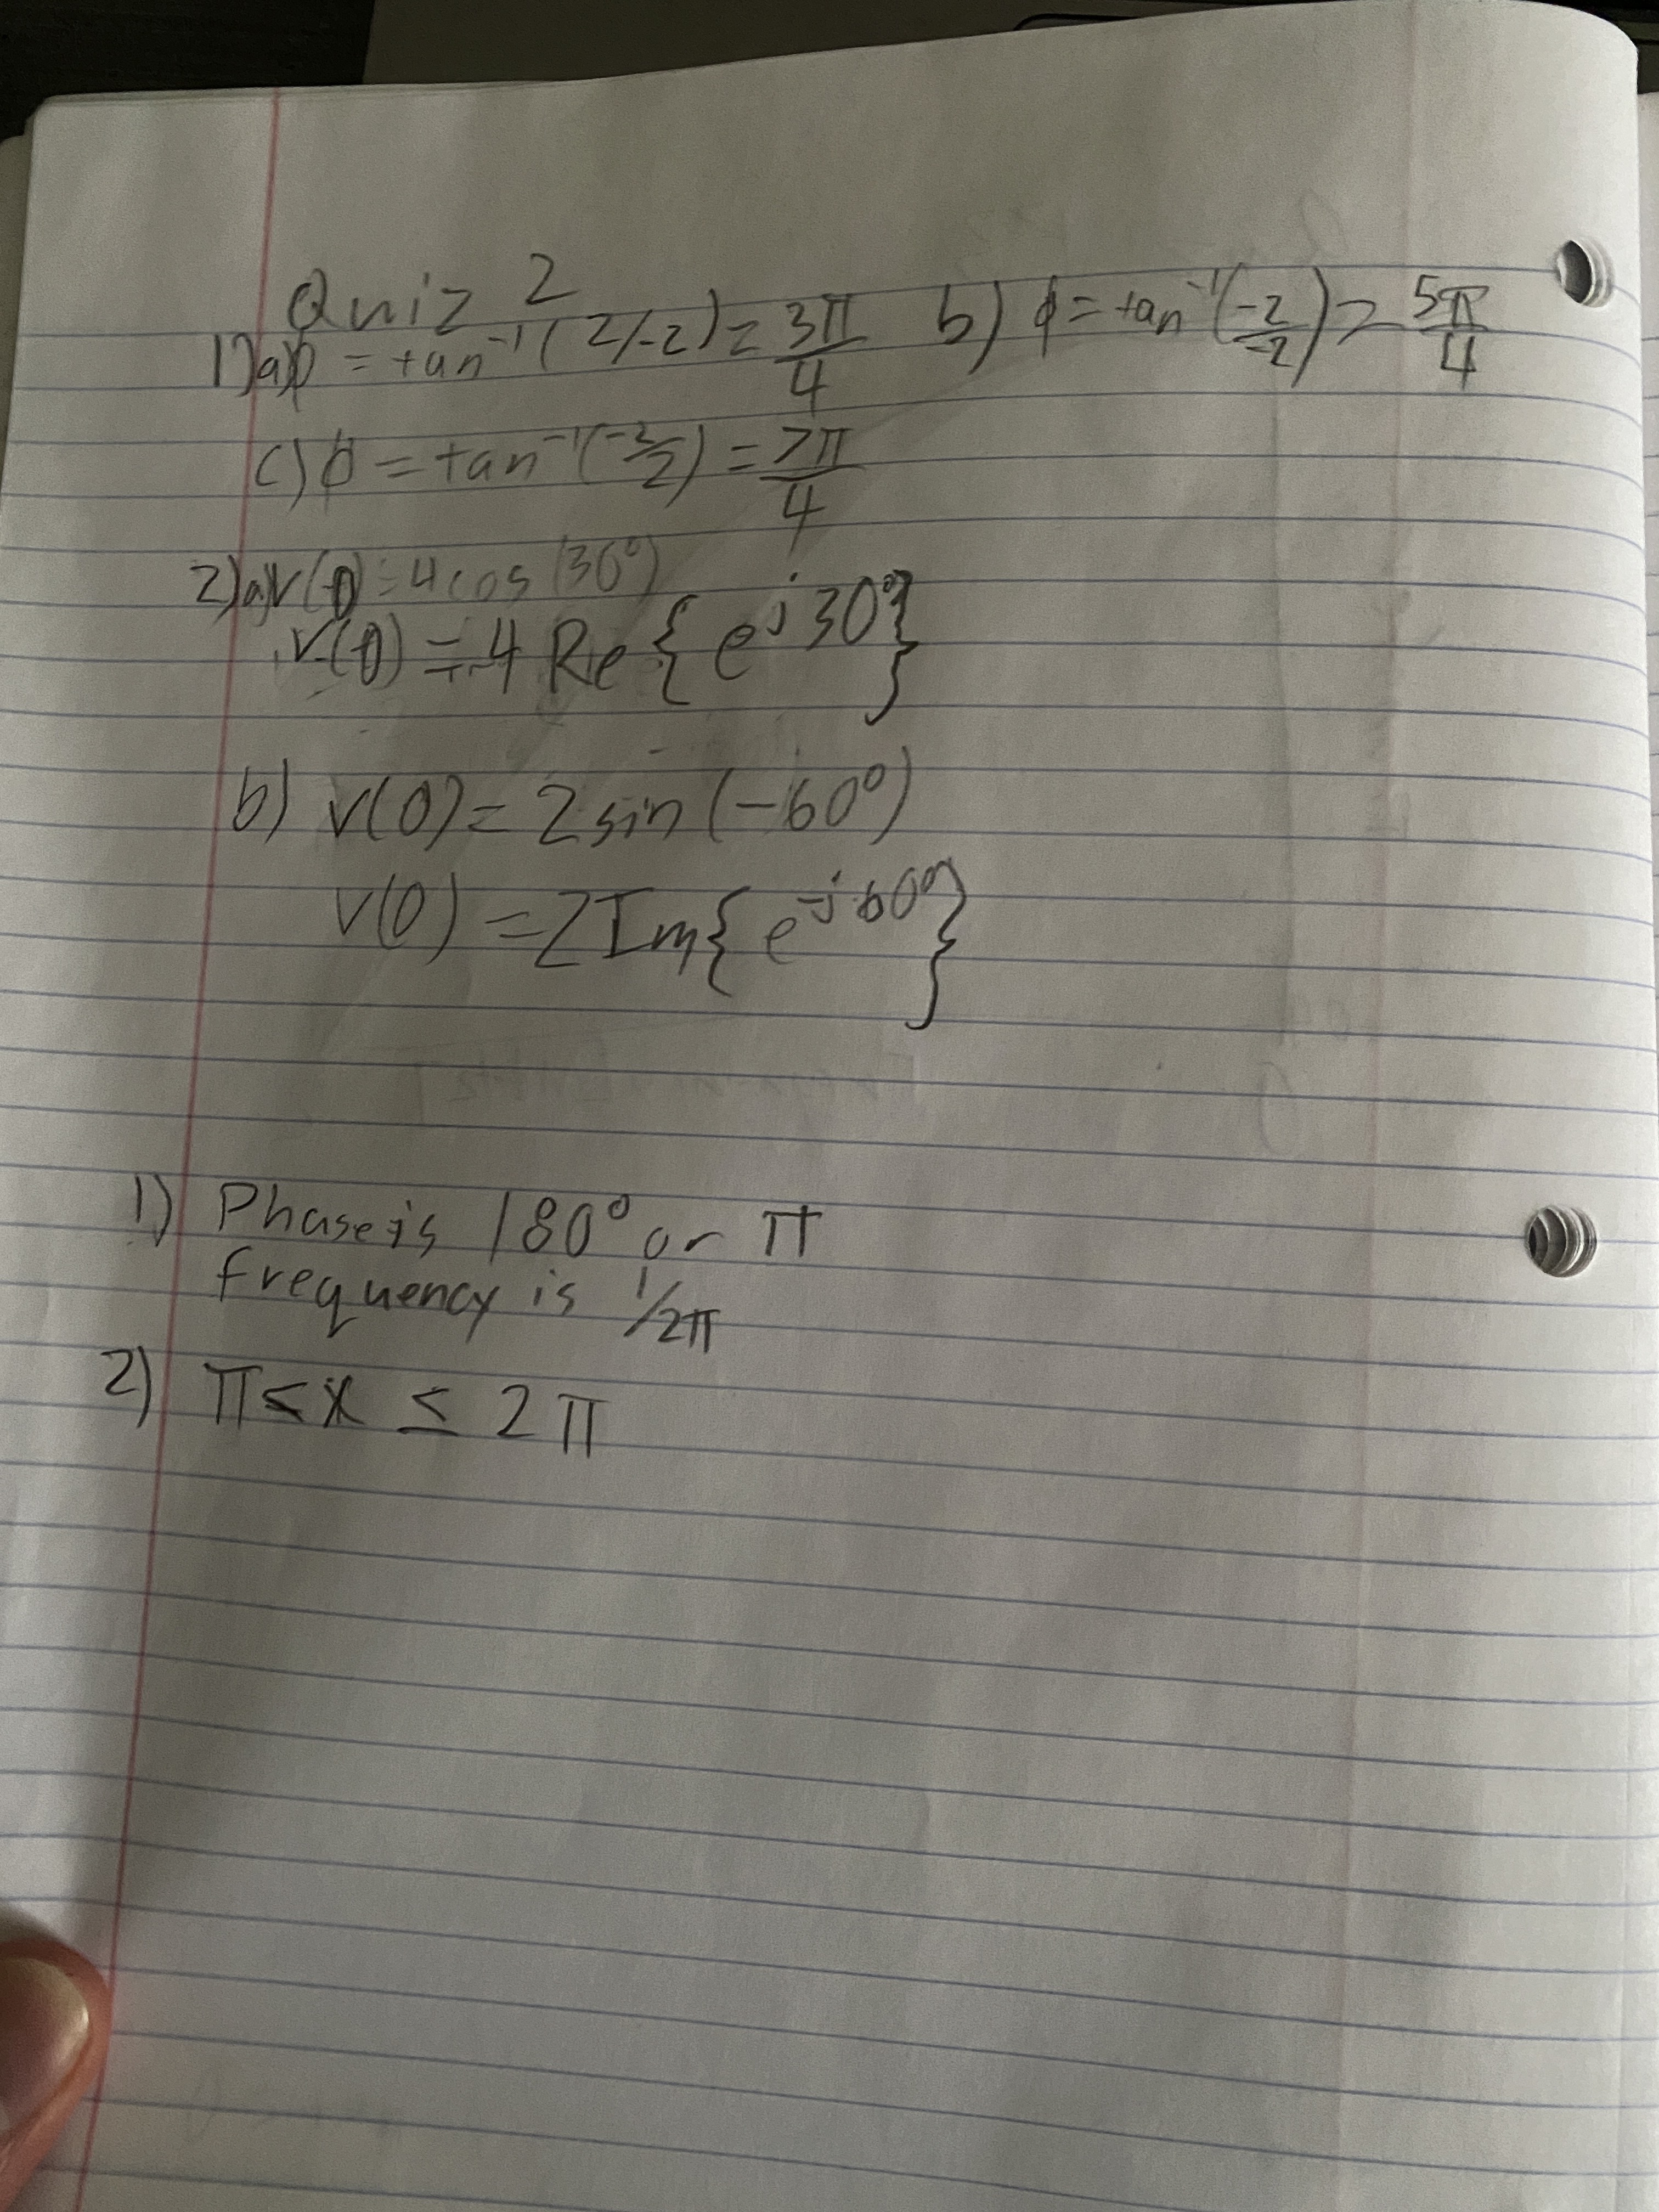 Quiz 2
1) a) ϕ = tan⁻¹(2/-2) = 3π/4 b) ϕ = tan⁻¹(-2/-2) = 5π/4
c) ϕ = tan⁻¹(-2/2) = 7π/4
2) a) v(0) = 4cos(30°)
v(0) = 4 Re{e^j30°}
b) v(0) = 2sin(-60°)
v(0) = 2Im{e^-j60°}
1) Phase is 180° or π
frequency is 1/2π
2) π ≤ x ≤ 2π